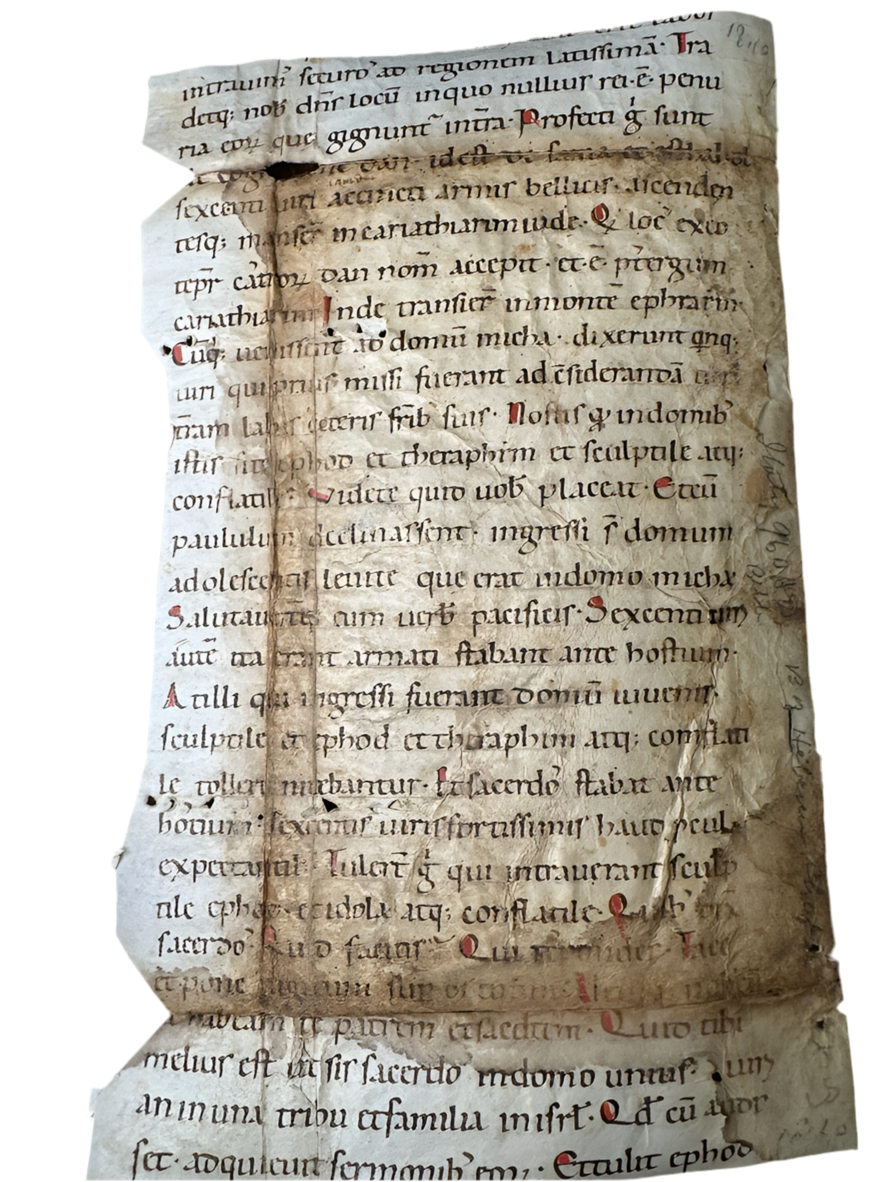 labor
intrauim᷒ securo᷒ ad regionem latissimā. Tra
detq; nob᷒ dn̄s locū inquo nullius rei ē penu
ria eoꝝ que gignunt᷒ intr̄a. Profecti g̊ sunt
dan. id est de saraa et esthaol
sexcenti uiri accincti armis bellicis. ascenden
tesq; manser̄ incariathiarimiude. Q loc᷒ exeo
tēpr castroꝝ dan nom̄ accepit. et ē p̄tergum
cariathiarim Inde transier̄ inmontē ephraim.
Cūq; uenissent ad domū micha. dixerunt qnq;
uiri qui prius missi fuerant ad c̄siderandā
tr̄am lais ceteris frīb suis. Nostis qđ indomib᷒
istis sit ephod et theraphim et sculptile atq;
conflatile Videte quid uob᷒ placeat. Etcū
paululum declinassent. ingressi s̄ domum
adolescentis leuite que erat indomo micha
Salutauer̄tq; eum uerb᷒ pacificis. Sexcenti uiri
autē ita erant armati stabant ante hostium.
Atilli qui ingressi fuerant domū iuuenis.
sculptile et ephod et theraphim atq; conflati
le tollere nitebantur. Et sacerdo᷒ stabat ante
hotium. sexcentis uiris fortissimis haud pcul
expectantib. Tulert̄ g̊ qui intrauerant sculp
tile ephod et idola atq; conflatile. Quib᷒ dix̄
sacerdo᷒ Quid facitis Qui r̄nder̄. Tace
et pone digitum sup os tuum
habeam te patrem et sacerdotem. Quid tibi
melius est ut sis sacerdo᷒ indomo unius uiri
an in una tribu et familia in isrł. Qđ cū audis
set. adquieuit sermonib᷒ eoꝝ. Ettulit ephod